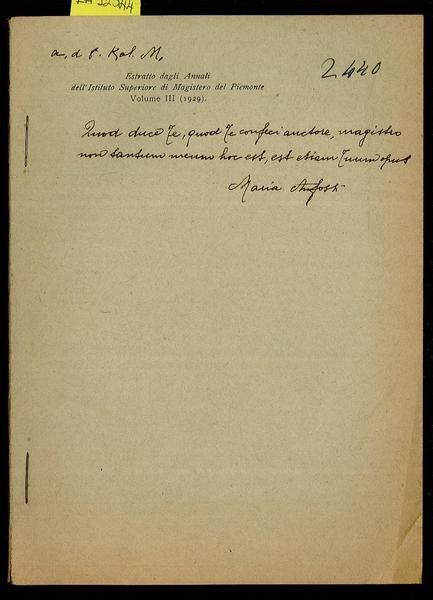 a. d 8. Kal. M.
2440
Estratto dagli Annali
dell'Istituto Superiore di Magistero del Piemonte
Volume III (1929).
Quod duce Te, quod Te confeci auctore, magistro
non tantum meum hoc est, est etiam Tuum opus
Maria